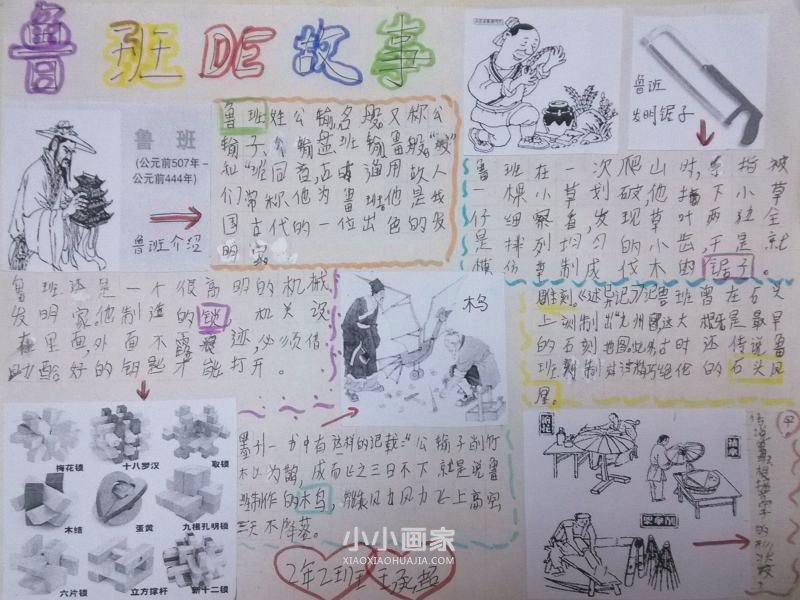 鲁班DE故事
鲁班
(公元前507年-
公元前444年)
鲁班介绍
鲁班姓公输,名般,又称公
输子、公输盘、班输、鲁般。"般"
和"班"同音,古时通用,故人
们常称他为鲁班。他是我
国古代的一位出色的发
明家。
鲁班
发明锯子
鲁班在一次爬山时,手指被
一棵小草划破,他摘下小草
仔细察看,发现草叶两边全
是排列均匀的小齿,于是就
模仿草制成伐木的锯子。
鲁班还是一个很高明的机械
发明家。他制造的锁,机关设
在里面,外面不露痕迹,必须借
助配好的钥匙才能打开。
梅花锁
十八罗汉
取锁
木结
蛋黄
九根孔明锁
六片锁
立方撑杆
新十二锁
木鸟
墨子一书中有这样的记载:"公输子削竹
木以为鹊,成而飞之三日不下"就是说鲁
班制作的木鸟,能乘风力飞上高空
三天不降落。
雕刻。《述异记》记鲁班曾在石头
上刻制出"九州图"这大概是最早
的石刻地图。此外,古时还传说鲁
班刻制过精巧绝伦的石头凤
凰。
伞
2年2班
小小画家
XIAOXIAOHUAJIA.COM